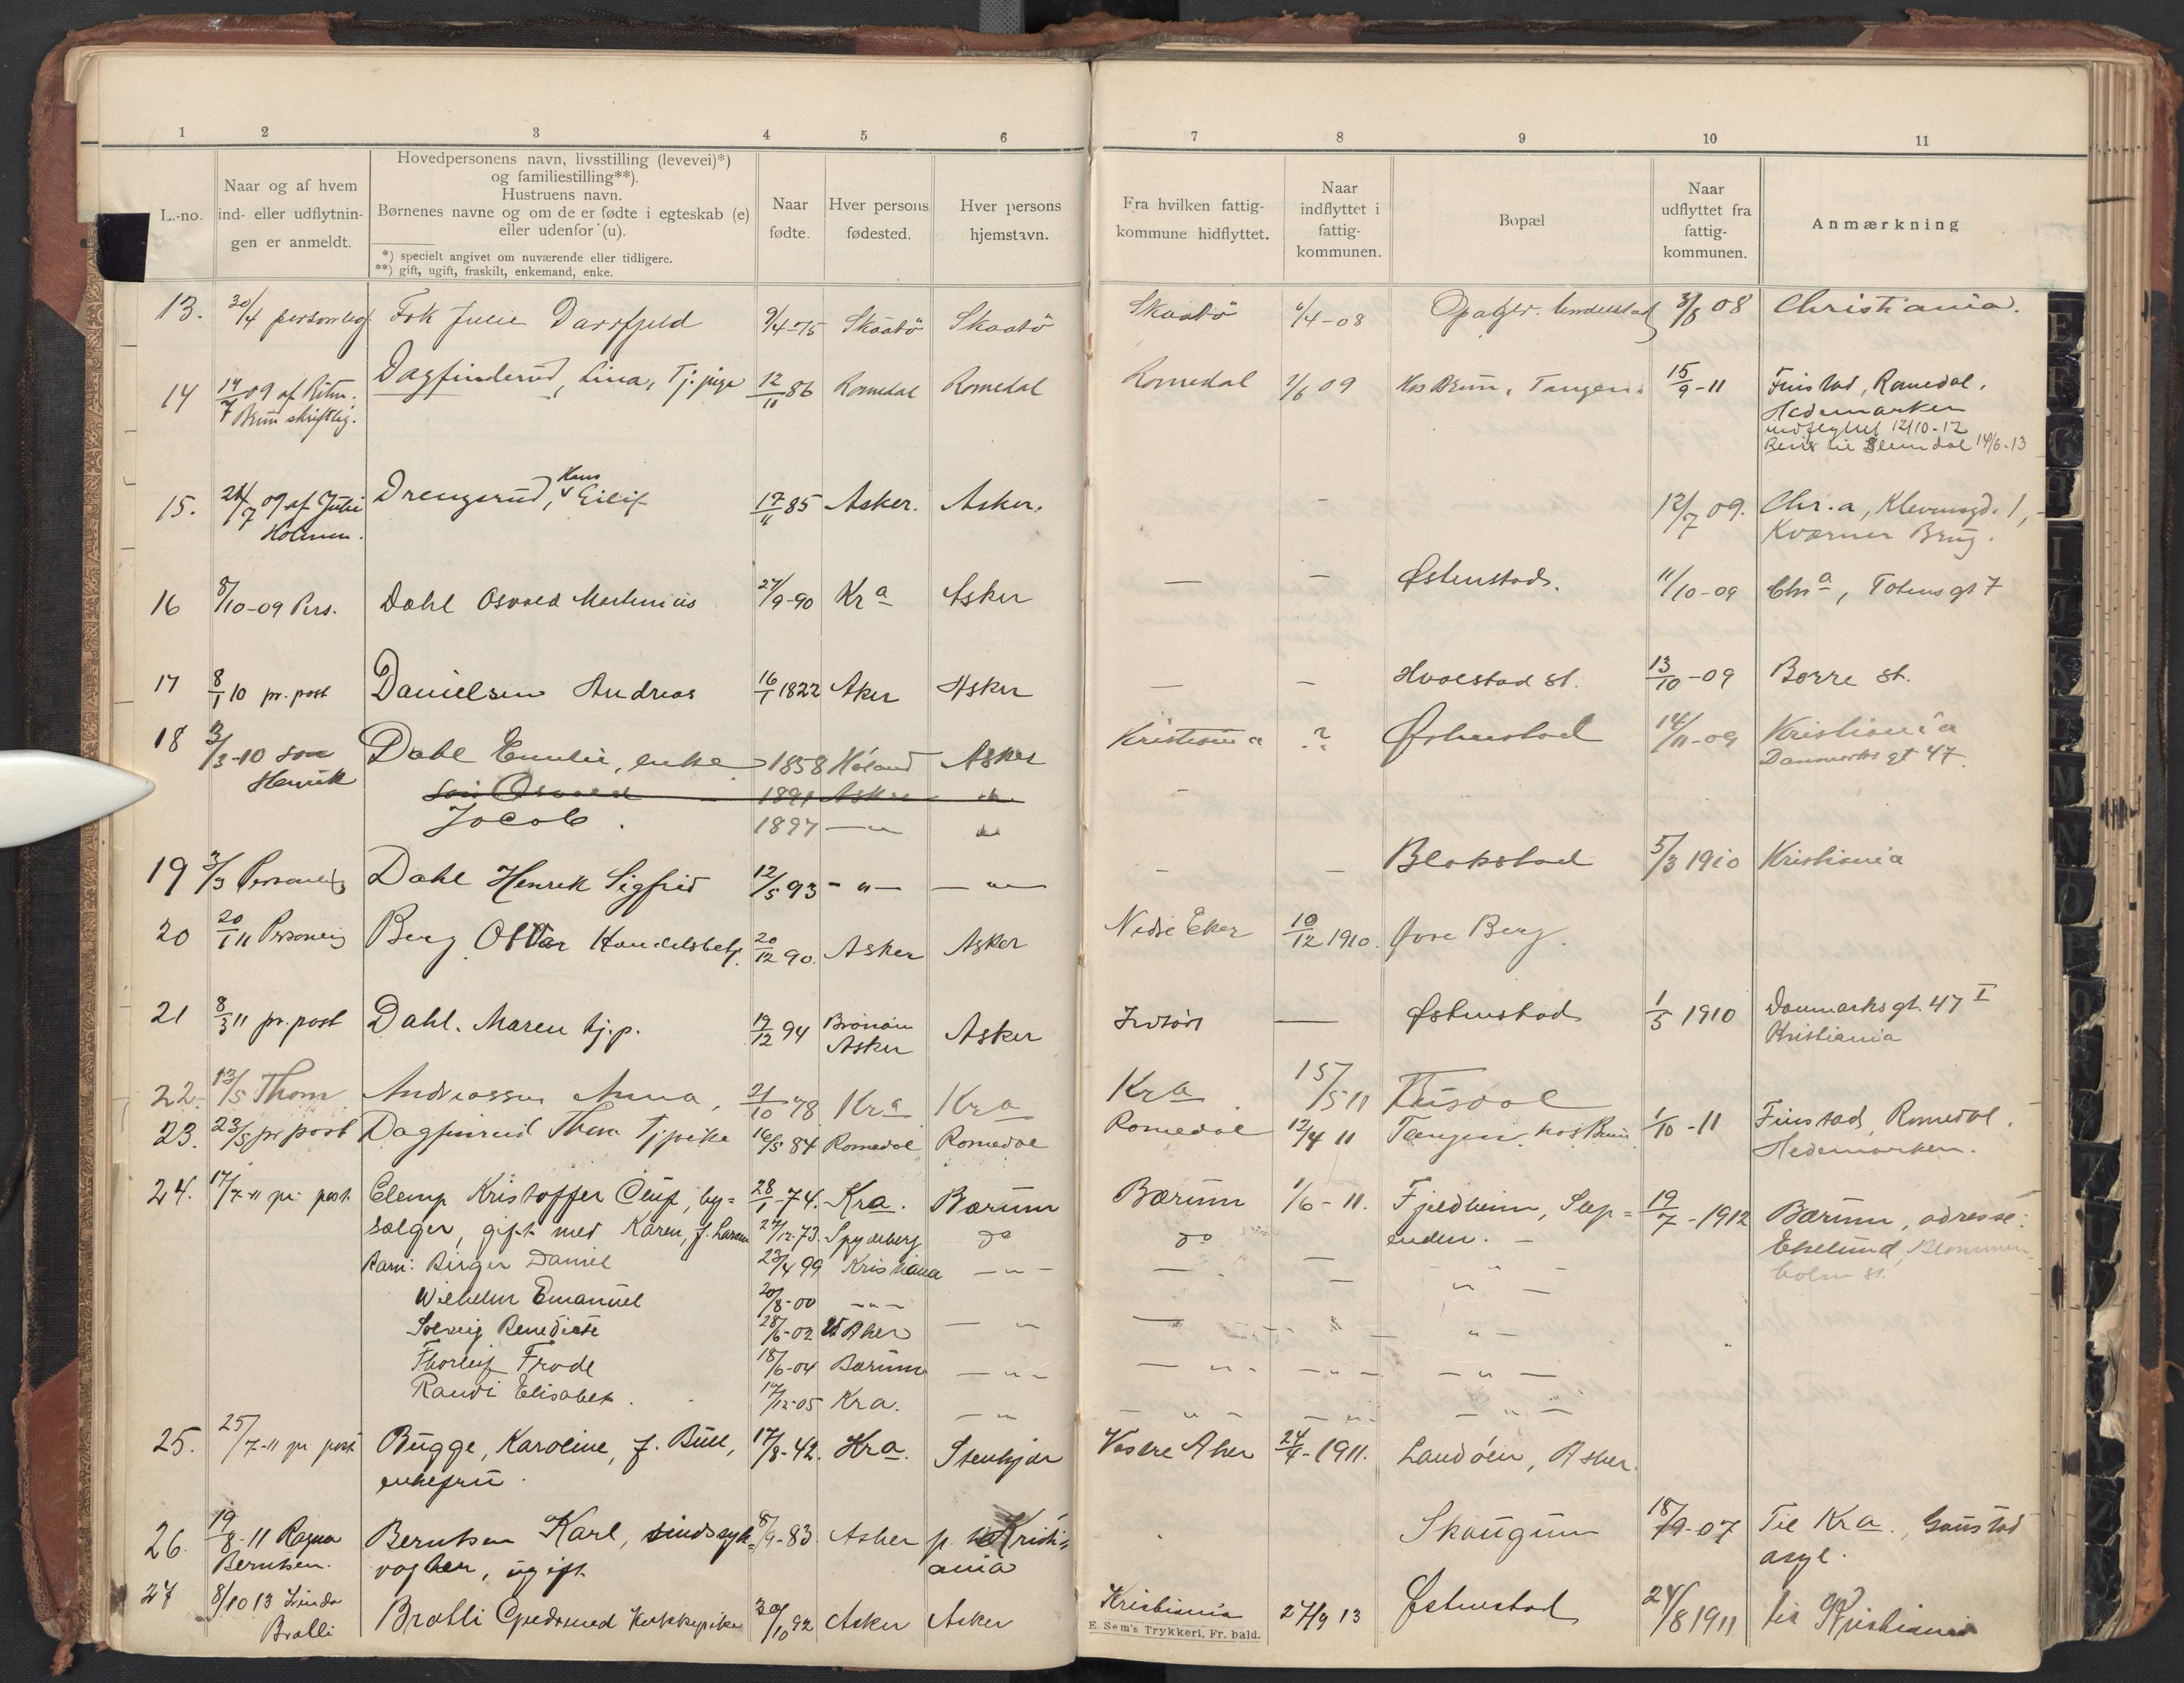 1 2 3 4 5 6 7 8 9 10 11
L.-no.
Naar og af hvem
ind- eller udflytnin-
gen er anmeldt.
Hovedpersonens navn, livsstilling (levevei)*)
og familiestilling**).
Hustruens navn.
Børnenes navne og om de er fødte i egteskab (e)
eller udenfor (u).
*) specielt angivet om nuværende eller tidligere.
**) gift, ugift, fraskilt, enkemand, enke.
Naar
fødte.
Hver persons
fødested.
Hver persons
hjemstavn.
Fra hvilken fattig-
kommune hidflyttet.
Naar
indflyttet i
fattig-
kommunen.
Bopæl
Naar
udflyttet fra
fattig-
kommunen.
Anmærkning
13. 30/4 personlig Frk Julie Darrfjeld 9/4-75 Skåtö Skaatö Skaatö 6/4-08 3/8 08 Christiania.
14 14/7 09 af Ritm. Dagfinderud, Lina, Tj.pige 12/11 86 Romedal Romedal Romedal 1/6 09 Hos Brun, Tangen. 15/9-11 Finstad, Romedal,
Brun skriftlig.
Hedemarken
indflyttet 12/10-12
Reist til Slemdal 14/6-13
Hans
15. 21/7 09 af Julie Drengsrud, Eilif 17/11 85 Asker. Asker. – 12/7 09. Chr.a, Klevensgd. 1,
Holmen.
Kværner Brug.
16 8/10-09 Pers. Dahl Osvald Martinius 27/9-90 Kra Asker — – Østenstad. 11/10-09 Chra, Totensgt 7
17 8/1 10 pr. post Danielsen Andreas 16/1 1822 Aker Asker — – Hvalstad st. 13/10-09 Borre st.
18 3/3-10 son Dahl Emilie, enke 1858 Høland Asker Kristiania ? Østenstad 14/11-09 Kristiania
Henrik
Danmarks gt 47.
søn Osvald 1891 Asker –
Jacob. 1897 —"
19 3/3 Personlig Dahl Henrik Sigfrid 12/5 93 – " – — " — – – Blakstad 5/3 1910 Kristiania
20 20/1 11 Personlig Berg Ottar Handelsbetj. 20/12 90. Asker Asker Nedre Eker 10/12 1910. Øvre Berg.
21 8/3 11 pr. post Dahl. Maren tj.p. 19/12 94 Brönöen Asker — Østenstad 1/5 1910 Danmarksgt. 47 I
Asker
Kristiania
22. 13/5 Thom Andreassen Anna, 21/10 78 Kra Kra Kra 15/5 11
23. 23/5 pr post Dagfinrud Thea Tjpike 16/5 84 Romedal Romedal Romedal 12/4 11 Tangen hos Brun 1/10-11 Finstad, Romedal.
Hedemarken.
24. 17/7-11 pr. post Clemp Kristoffer Oluf, by= 28/1-74. Kra. Bærum Bærum 1/6-11. Fjeldheim, Slep= 19/7-1912 Bærum, adresse:
sælger, gift med Karen, f. Larsen 27/12-73. Spydeberg do do enden. –
Ekelund, Blommen-
holm st.
Barn: Birger Daniel 23/4 99 Kristiania — " – — – " –
Wilhelm Emanuel 20/8-00 – " –
Solveig Benedicte 28/6-02 V Aker — " — – " –
Thorleif Frode 18/6-04 Bærum — " – — " – – " – – " –
Randi Elisabet. 17/12-05 Kra. — " – " – – " – – " –
25. 25/7-11 pr post Bugge, Karoline, f. Bull, 17/8-42. Kra. Stenkjær Vestre Aker 24/4-1911. Landøen, Asker.
enkefru.
26. 19/8-11 Ragna Berntsen Karl, sindssyg= 8/9-83. Asker Kristi= Skaugum 18/9-07 Til Kra., Gaustad
Berntsen. vogter, ugift ania asyl.
27 8/10 13 Linda Bratli Gudrund Kokkepike 30/10 92 Asker Asker Kristiania 27/9 13 Østenstad 24/8 1911 til Kristiania
Bratli
E. Sem's Trykkeri, Fr. hald.